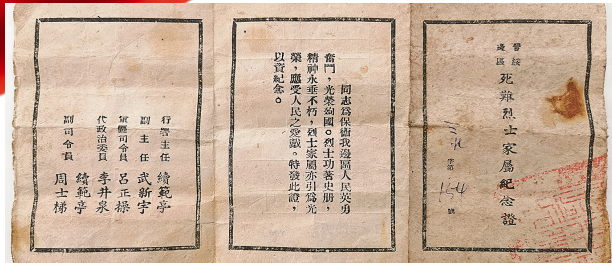 晉綏
邊區
死難烈士家屬紀念證
字第 154 號
同志為保衛我邊區人民英勇
奮鬥，光榮殉國。烈士功著史册，
精神永垂不朽，烈士家屬亦引爲光
榮，應受人民之愛戴。特發此證，
以資紀念。
行署主任 續範亭
副主任 武新宇
軍區司令員 呂正操
代政治委員 李井泉
副司令員 續範亭
周士梯